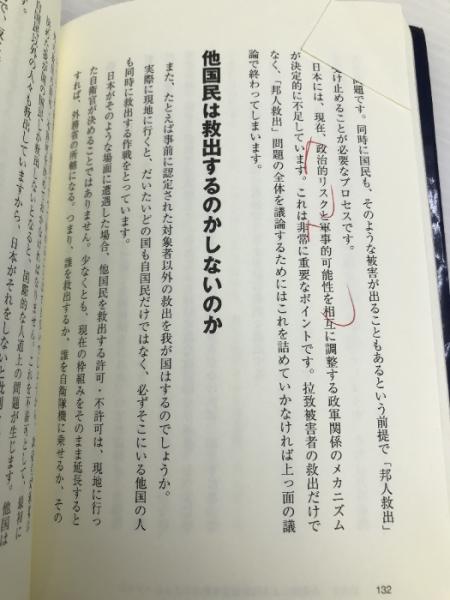 問題です。同時に国民も、そのような被害が出ることもあるという前提で「邦人救出」
受け止めることが必要なプロセスです。
日本には、現在、政治的リスクと軍事的可能性を相互に調整する政軍関係のメカニズム
が決定的に不足しています。これは非常に重要なポイントです。拉致被害者の救出だけで
なく、「邦人救出」問題の全体を議論するためにはこれを詰めていかなければ上っ面の議
論で終わってしまいます。
他国民は救出するのかしないのか
また、たとえば事前に認定された対象者以外の救出を我が国はするのでしょうか。
実際に現地に行くと、だいたいどの国も自国民だけではなく、必ずそこにいる他国の人
も同時に救出する作戦をとっています。
日本がそのような場面に遭遇した場合、他国民を救出する許可・不許可は、現地に行っ
た自衛官が決めることではありません。少なくとも、現在の枠組みをそのまま延長すると
すれば、外務省の所轄になる。つまり、誰を救出するか、誰を自衛隊機に乗せるか、その
国際的な人道上の問題が生じます。他国は
自国民以外の人々も救出していますから、日本がそれをしないと批判
132